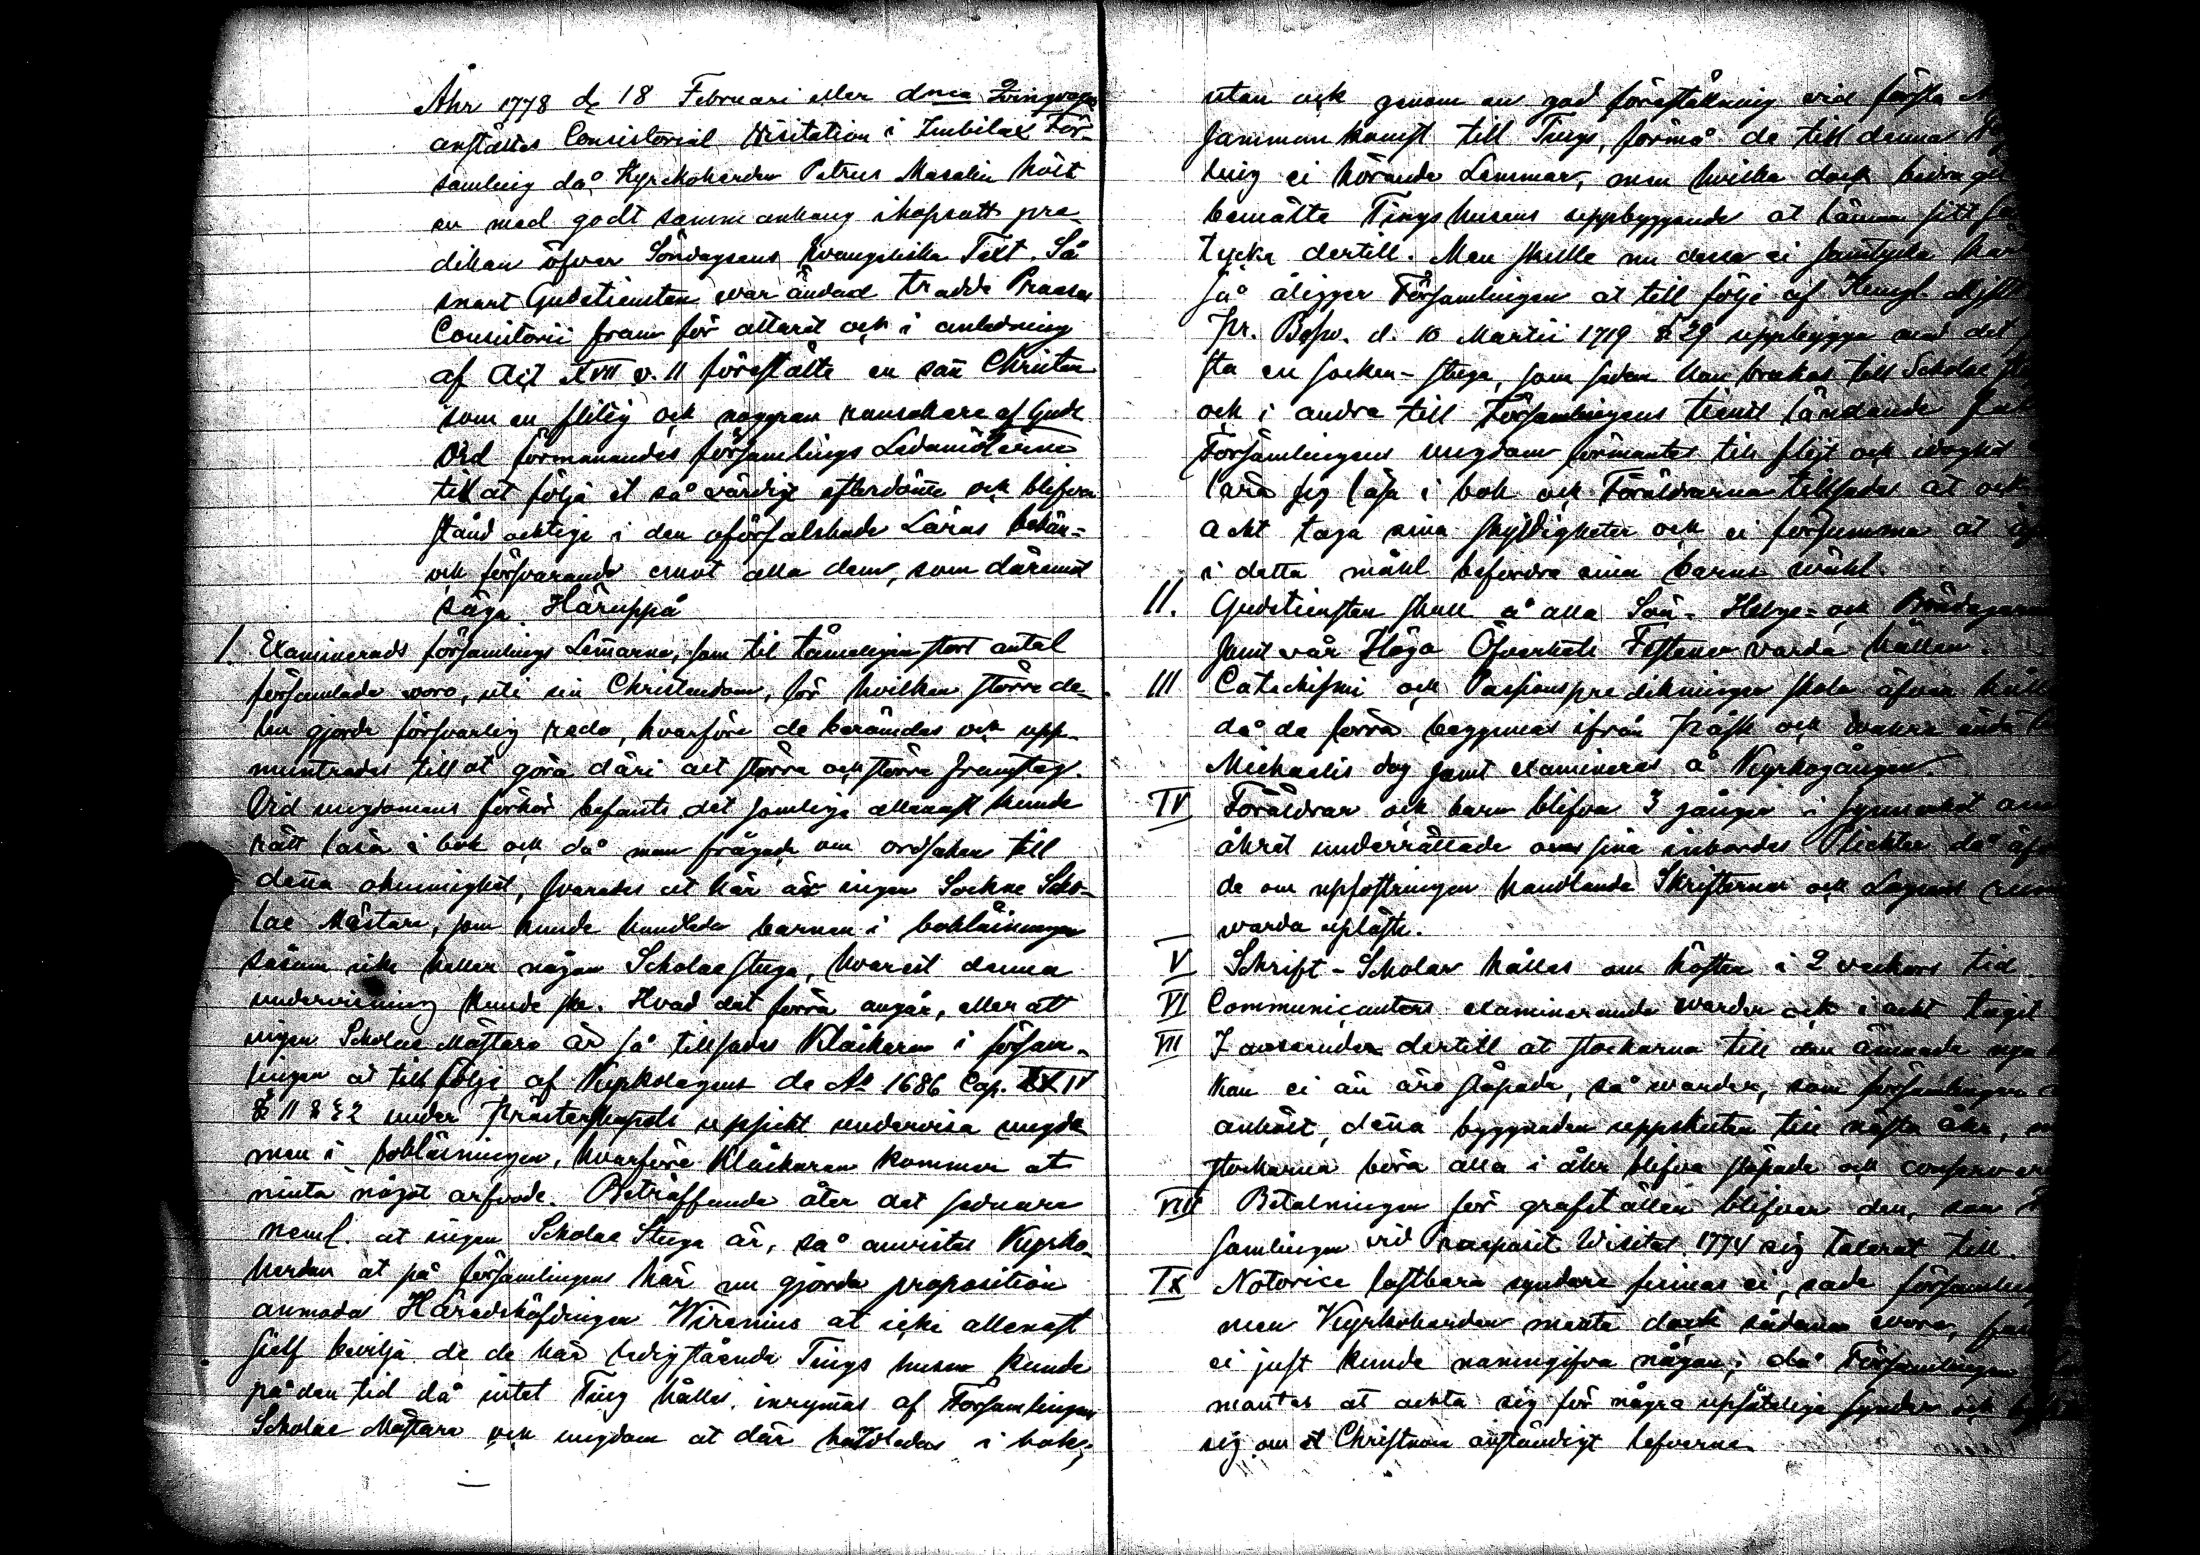 Åhr 1778 d. 18 Februari eller dnca
anstältes Consistorial Visitation i Imbilax För-
samling då Kyrckoherden Petrus Masalin hölt
en med godt sammanhang ihopsatt pre-
dikan öfver Söndagens Evangeliska Text. Så
snart Gudstiensten war ändad trädde Praeses
Consistorii fram för altaret och i anledning
af Act XVII v. 11 förestälte en san Christen
som en flitig och noggran ransakare af Guds
Ord förmanandes församlings Ledamöterne
till at följa et så värdigt efterdöme och blifva
ståndachtige i den oförfalskade Läras bekän-
och försvarande emot alla dem, som däremot
säga. Häruppå
1. Examinerads församlings Lemarne, som til tämeligen stort antal
församlade woro, uti sin Christendom, för hvilken större de-
len gjorde försvarlig redo, hvarföre de berömdes och upp-
muntrades till at göra däri alt större och större framsteg.
Vid ungdomens förhör befants det somlige allenast kunde
rätt läsa i bok och då man frågade om orsaken till
denna okunnighet, svarades at här är ingen Sockne Scho-
lae Mästare, som kunde handleda barnen i bokläsningen
såsom icke heller någon Scholae stuga, hvarest denna
undervisning kunde ske. Hvad det förra angår, eller att
ingen Scholae Mästare är så tillsades Klåckaren i försam-
lingen at till följe af Kyrkolagens de Ao 1686 Cap. XXIV
§ 11 & 22 under Prästerskapets uppsickt undervisa ungdo
men i bokläsningen, hvarföre Klåckaren kommer at
niuta något arfvode. Beträffande åter det sednare
neml. at ingen Scholae Stuga är, så anvistes Kyrko-
herden at på församlingens här nu gjorda proposition
anmoda Häradshöfdingen Wirenius at icke allenast
sielf bevilja de de här ledigstående Tings husen kunde
på den tid då intet Ting hålles, inrymas af Församlingens
Scholae Mästare och ungdom at där handledas i bok,
utan ock genom en god föreställning vid första
sammankomst till Tings, förmå de till denna
ling ei hörande Lemmar, men hvilka dock bidragit
bemälte Tingshusens uppbyggande at lämna sitt
tycke dertill. Men skulle nu dessa ei samtycka
så åligger Församlingen at till följe af Kongl.
Pr. Resv. d. 10 Martii 1719 § 29 uppbygga med det
sta en socken-stuga, som sedan kan brukas till Scholae
och i andra till Församlingens tienst ländande
Församlingens ungdom förmantes till flijt och idoghet
lära sig läsa i bok och Föräldrarna tillsades at ock
acht taga sina skyldigheter och ei försumma at
i detta måhl befordra sina barns wähl.
II. Gudstiensten skall å alla Sön- Helge- och Bönedagarne
samt vår Höga Öfverhets Festener varda hållen.
III Catechismi och Passionspredikningar skola äfven
då de förra begynnas ifrån Påsk och wahra ända
Michaelis dag samt examineras å Kyrkogången.
IV Föräldrar och barn blifva 3 gånger i synnerhet om
åhret underrättade om sina inbördes Plichter då
de om upfostringen handlande Skrifterna och Lagens
warda upläste.
V Schrift-Scholar hålles om hösten i 2 veckors tid.
VI Communicanters examinerande warder ock i acht tagit
VII I anseende dertill at stockarna till den ämnade nya
kan ei än äro släpade, så warder, som församlingen
anhölt, denna byggnaden uppskuten till nästa åhr,
stockarna böra alla i åhr blifva släpade och
VIII Betalningen för grafställen blifver den, som
samlingen vid Visitat. 1774 sig till.
IX Notorice lastbara syndare finnas ei, sade församlingen
men Kyrkoherden mente dock sådana wore,
ei just kunde namngifva någon; då Församlingen
mantes at ackta sig för några upsåtelige synder och
sig om et Christnom anständigt lefverne.